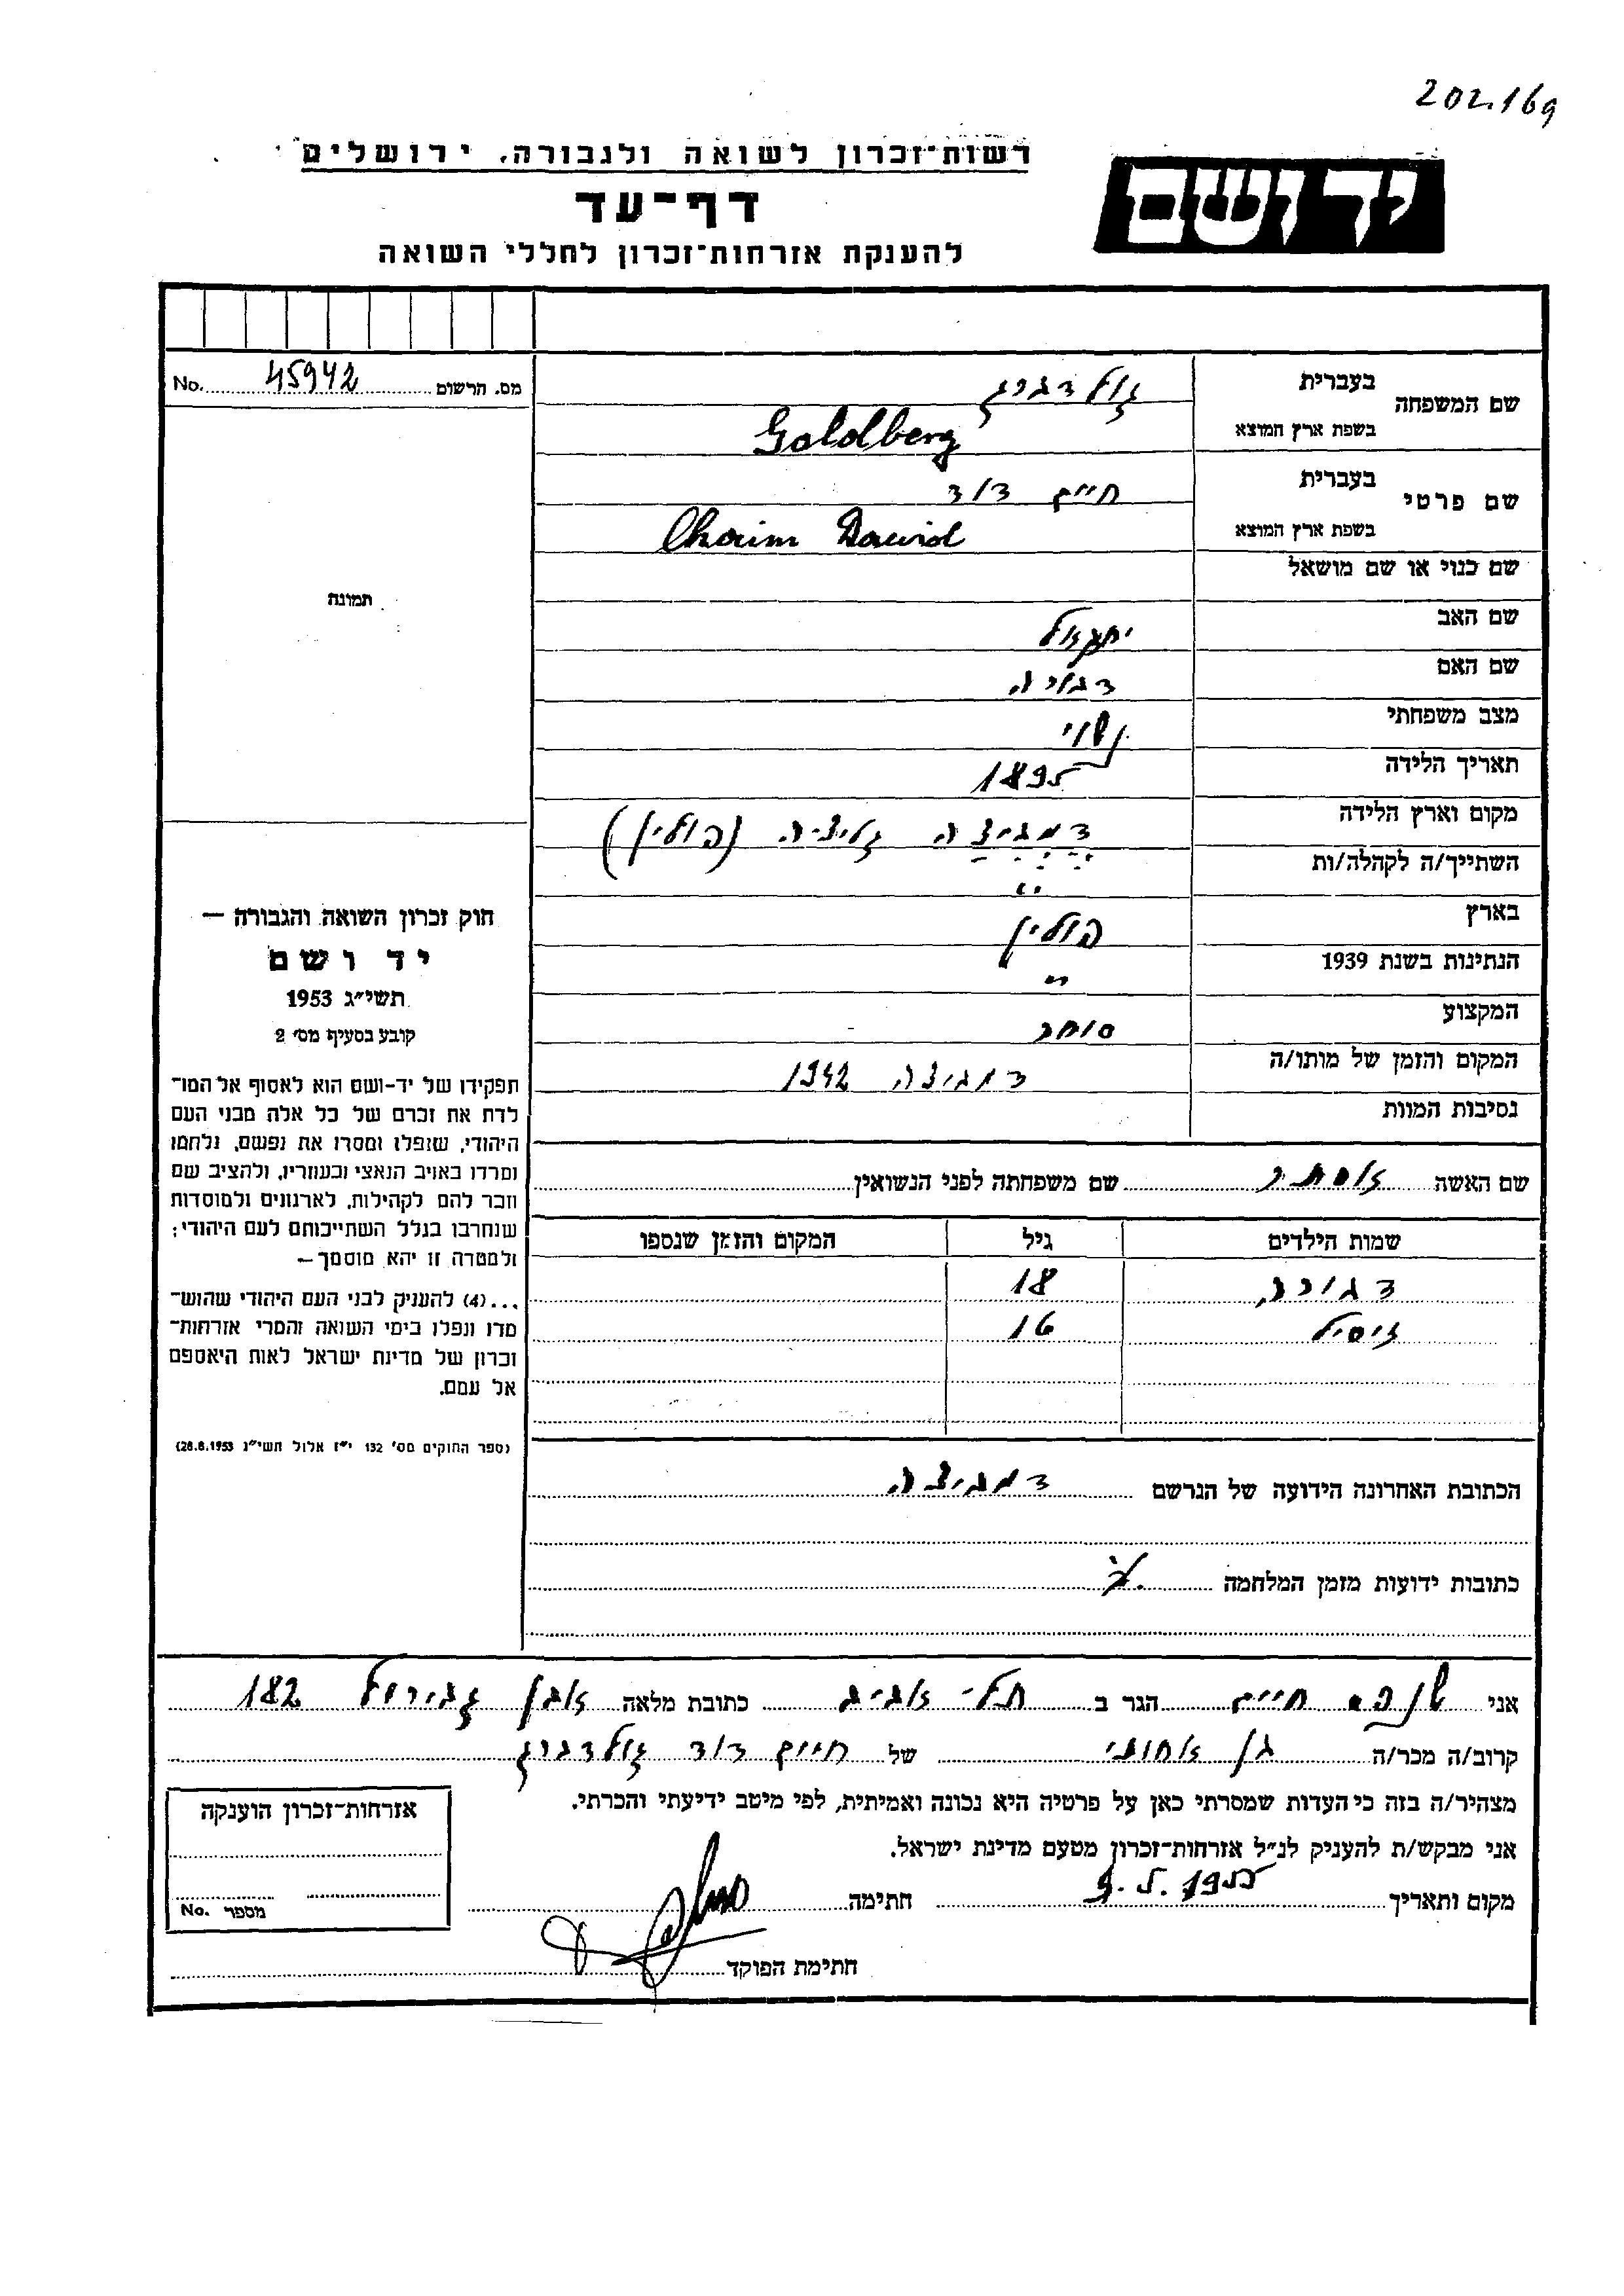 202.169
רשות־זכרון לשואה ולגבורה, ירושלים
יד ושם
דף־עד
להענקת אזרחות־זכרון לחללי השואה
מס. הרשום 45942 No.
שם המשפחה
בעברית גולדברג
בשפת ארץ המוצא Goldberg
שם פרטי
בעברית חיים דוד
בשפת ארץ המוצא Chaim Dawid
תמונה
שם כנוי או שם מושאל
שם האב יחזקאל
שם האם
מצב משפחתי נשוי
תאריך הלידה 1895
מקום וארץ הלידה דמביצה גליציה (פולין)
השתייך/ה לקהלה/ות "
בארץ פולין
הנתינות בשנת 1939 "
המקצוע סוחר
המקום והזמן של מותו/ה דמביצה 1942
נסיבות המוות
חוק זכרון השואה והגבורה —
יד ושם
תשי״ג 1953
קובע בסעיף מס׳ 2
תפקידו של יד-ושם הוא לאסוף אל המו־
לדת את זכרם של כל אלה מבני העם
היהודי, שנפלו ומסרו את נפשם, נלחמו
ומרדו באויב הנאצי ובעוזריו, ולהציב שם
וזכר להם לקהילות, לארגונים ולמוסדות
שנחרבו בגלל השתייכותם לעם היהודי;
ולמטרה זו יהא מוסמך —
...(4) להעניק לבני העם היהודי שהוש־
מדו ונפלו בימי השואה והמרי אזרחות־
זכרון של מדינת ישראל לאות היאספם
אל עמם.
(ספר החוקים מס׳ 132 י״ז אלול תשי״ג 28.8.1953)
שם האשה אסתר שם משפחתה לפני הנשואין
שמות הילדים גיל המקום והזמן שנספו
דבורה 18
זיסל 16
הכתובת האחרונה הידועה של הנרשם דמביצה
כתובות ידועות מזמן המלחמה
אני חיים הגר ב תל-אביב כתובת מלאה אבן גבירול 182
קרוב/ה מכר/ה בן אחותי של חיים דוד גולדברג
מצהיר/ה בזה כי העדות שמסרתי כאן על פרטיה היא נכונה ואמיתית, לפי מיטב ידיעתי והכרתי.
אני מבקש/ת להעניק לנ״ל אזרחות־זכרון מטעם מדינת ישראל.
מקום ותאריך 9.5.1955 חתימה
חתימת הפוקד
אזרחות־זכרון הוענקה
מספר No.